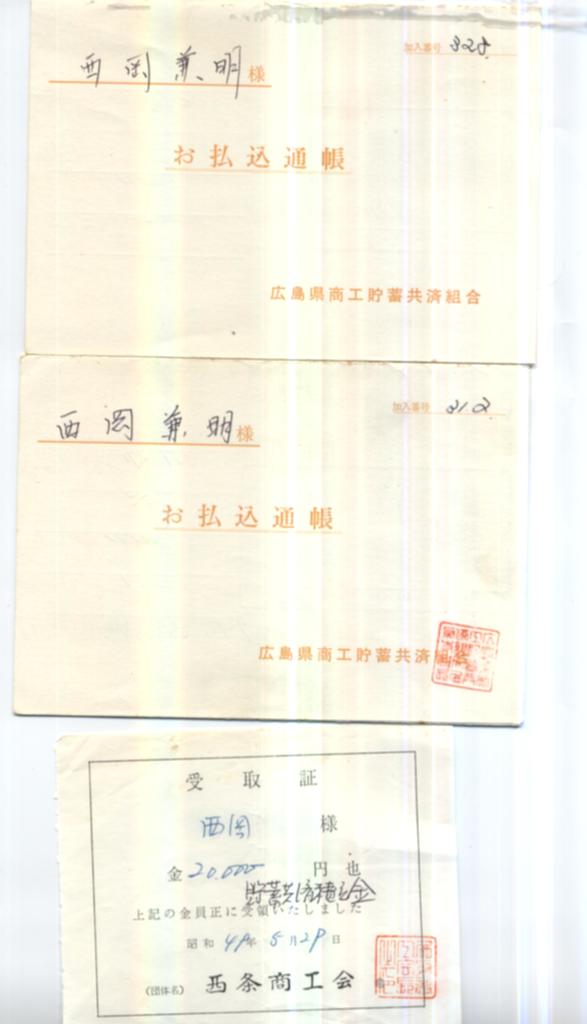 加入番号 325
西岡兼明様
お払込通帳
広島県商工貯蓄共済組合
加入番号 212
西岡兼明様
お払込通帳
広島県商工貯蓄共済組合
受取証
西岡 様
金20.000円也
貯蓄共済積立金
上記の金員正に受領いたしました
昭和49年5月29日
(団体名) 西条商工会